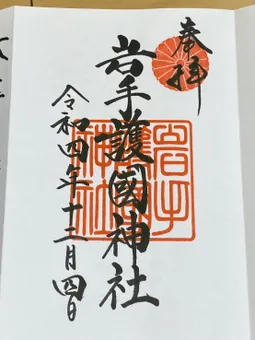 奉拝
岩手護國神社
令和四年十二月四日
岩手
護國
神社